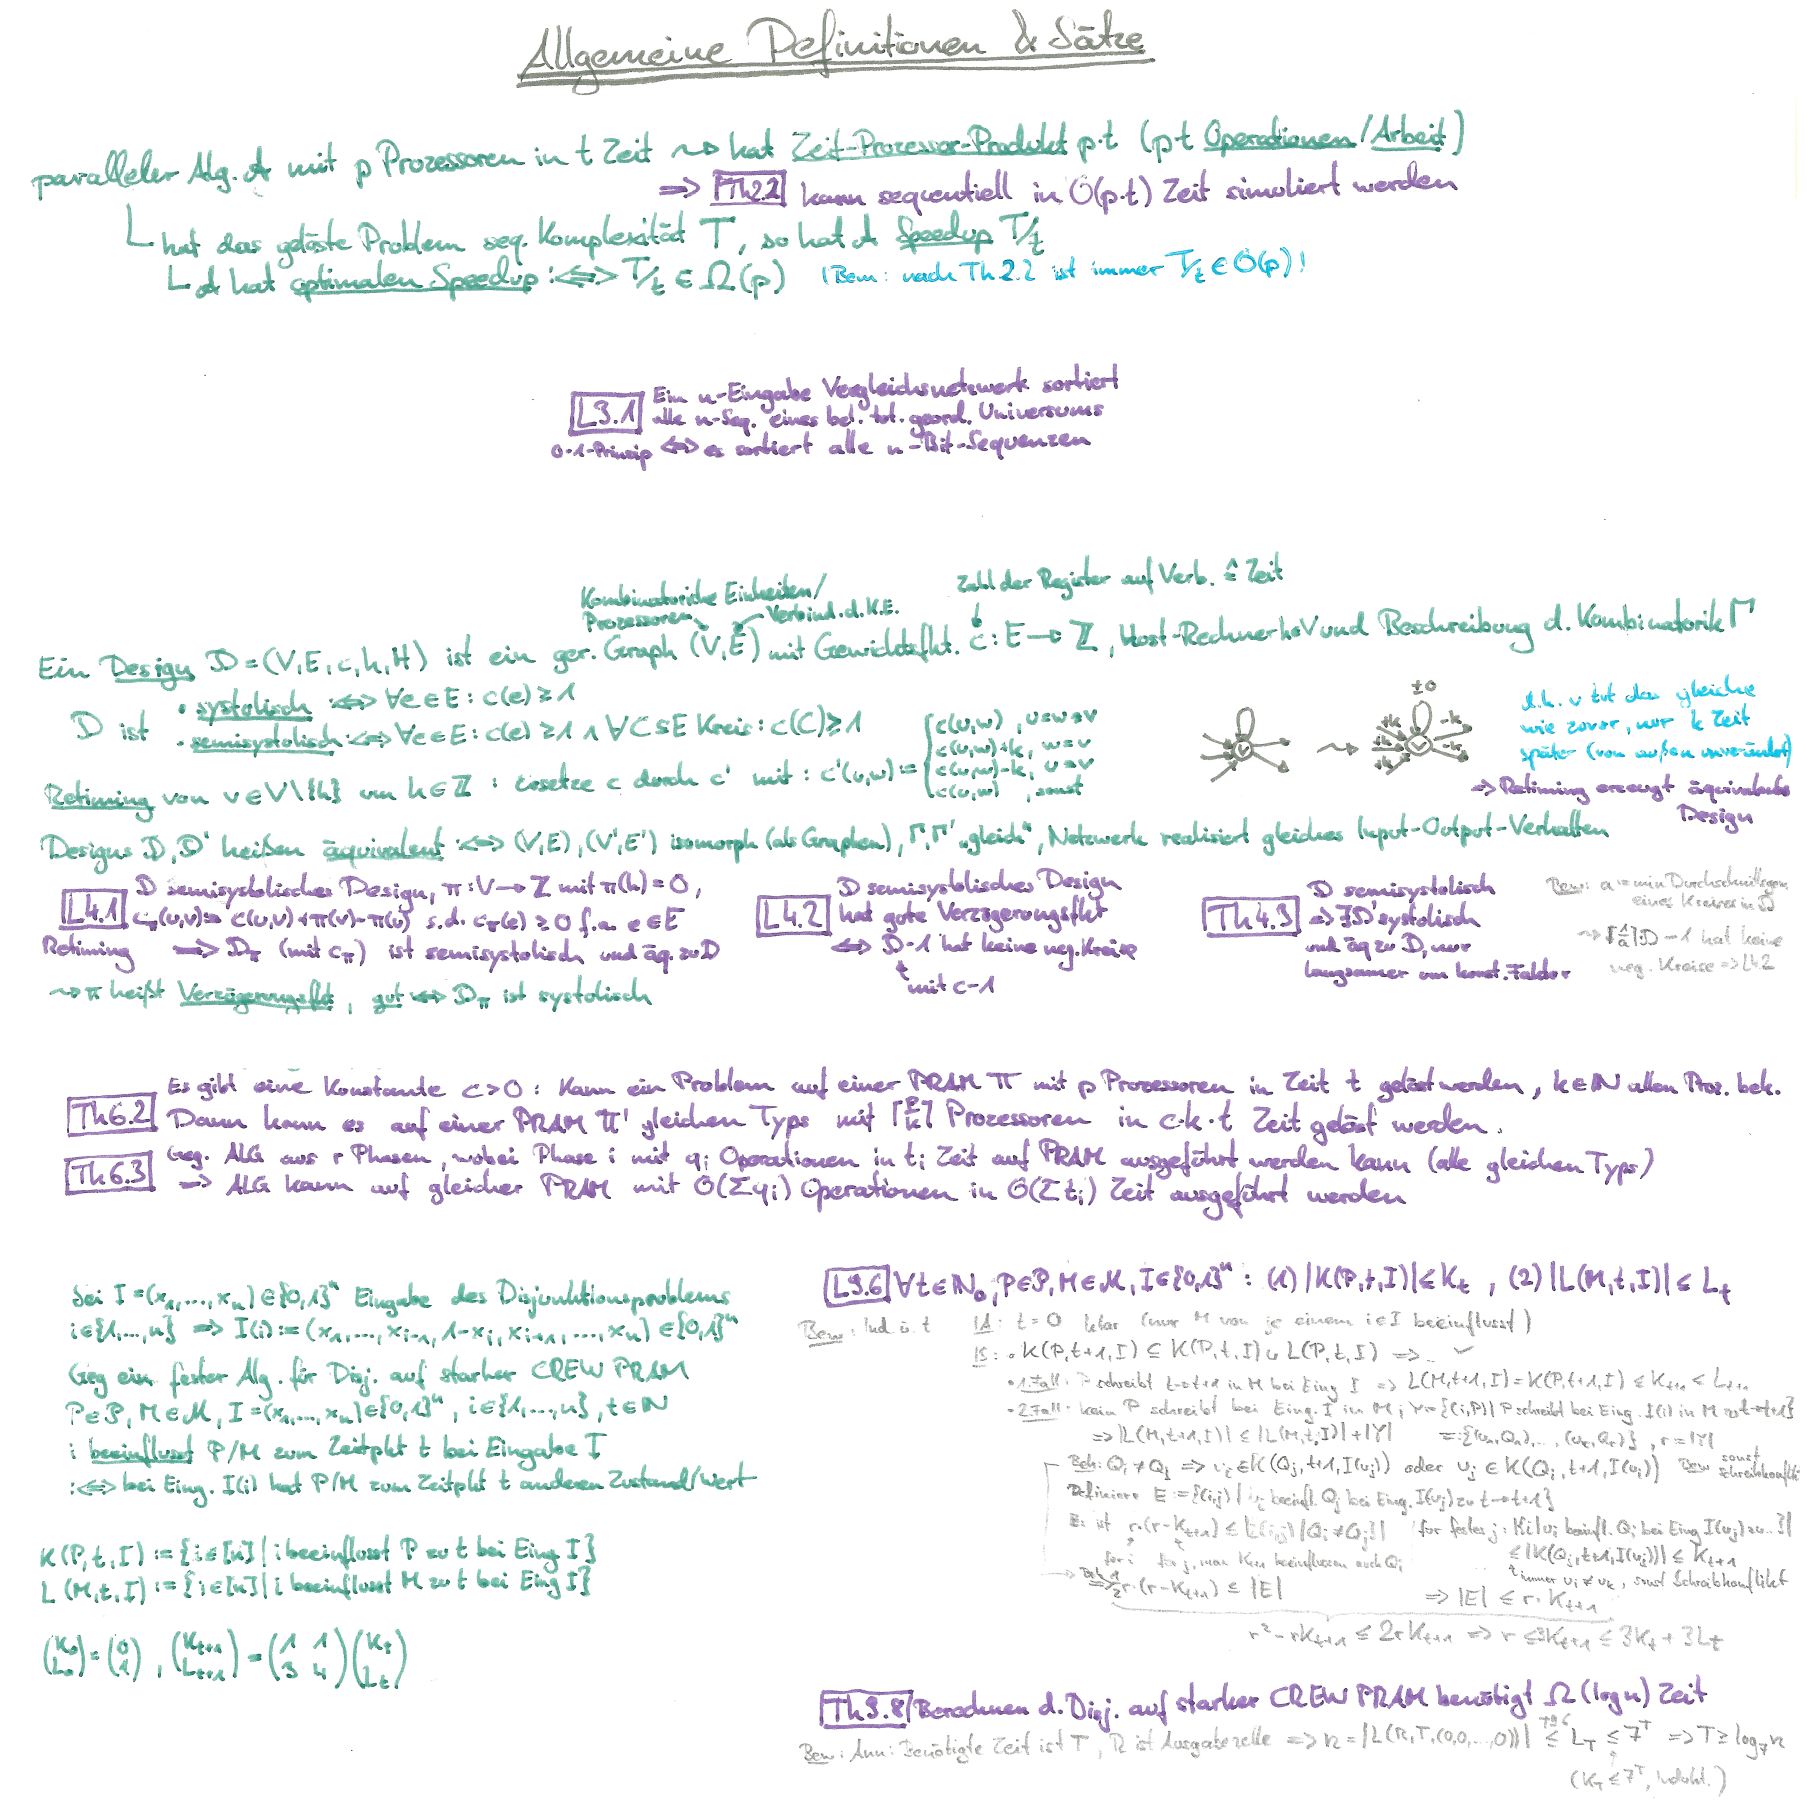 Allgemeine Definitionen & Sätze
paralleler Alg. A mit p Prozessoren in t Zeit ⇝ hat Zeit-Prozessor-Produkt p·t (p·t Operationen/Arbeit)
⇒ Th2.2 kann sequentiell in O(p·t) Zeit simuliert werden
hat das gelöste Problem seq. Komplexität T, so hat A Speedup T/t
A hat optimalen Speedup :⇔ T/t ∈ Ω(p) (Bem: nach Th2.2 ist immer T/t ∈ O(p)!
L3.1 Ein n-Eingabe Vergleichsnetzwerk sortiert
alle n-Seq. eines bel. tot. geord. Universums
0-1-Prinzip ⇔ es sortiert alle n-Bit-Sequenzen
Kombinatorische Einheiten/
Prozessoren
Verbind. d. K.E.
Zahl der Register auf Verb. ≙ Zeit
Ein Design D=(V,E,c,h,H) ist ein ger. Graph (V,E) mit Gewichtsfkt. c: E → ℤ, Host-Rechner h∈V und Beschreibung d. Kombinatorik Γ
D ist
· systolisch :⇔ ∀e∈E: c(e)≥1
· semisystolisch :⇔ ∀e∈E: c(e)≥1 ∧ ∀C⊆E Kreis: c(C)≥1
Retiming von v∈V\{h} um k∈ℤ: ersetze c durch c' mit: c'(u,w) :=
c(u,w) , u=w=v
c(u,w)+k, w=v
c(u,w)-k, u=v
c(u,w) , sonst
v
⇝
±0
+k
+k
+k
-k
-k
v
d.h. v tut das gleiche
wie zuvor, nur k Zeit
später (von außen unverändert)
⇒ Retiming erzeugt äquivalentes
Design
Designs D,D' heißen äquivalent :⇔ (V,E),(V',E') isomorph (als Graphen), Γ,Γ' „gleich“, Netzwerk realisiert gleiches Input-Output-Verhalten
L4.1 D semisystolisches Design, π:V→ℤ mit π(h)=0,
cπ(u,v):= c(u,v)+π(v)-π(u) s.d. cπ(e)≥0 f.a. e∈E
Retiming ⇒ Dπ (mit cπ) ist semisystolisch und äq. zu D
⇝ π heißt Verzögerungsfkt, gut ⇔ Dπ ist systolisch
L4.2 D semisystolisches Design
hat gute Verzögerungsfkt
⇔ D-1 hat keine neg. Kreise
mit c-1
Th4.3 D semisystolisch
⇒ ∃D' systolisch
und äq zu D, nur
langsamer um konst. Faktor
Bew: a := min Durchschnittsgew.
eines Kreises in D
⇝ ⌈1/a⌉D-1 hat keine
neg. Kreise ⇒ L4.2
Th6.2 Es gibt eine Konstante c>0: Kann ein Problem auf einer PRAM Π mit p Prozessoren in Zeit t gelöst werden, k∈ℕ allen Proz. bek.
Dann kann es auf einer PRAM Π' gleichen Typs mit ⌈p/k⌉ Prozessoren in c·k·t Zeit gelöst werden.
Th6.3 Geg. ALG aus r Phasen, wobei Phase i mit qᵢ Operationen in tᵢ Zeit auf PRAM ausgeführt werden kann (alle gleichen Typs)
⇒ ALG kann auf gleicher PRAM mit O(Σqᵢ) Operationen in O(Σtᵢ) Zeit ausgeführt werden
Sei I=(x₁,...,xₙ)∈{0,1}ⁿ Eingabe des Disjunktionsproblems
i∈{1,...,n} ⇒ I(i):=(x₁,...,xᵢ₋₁,1-xᵢ,xᵢ₊₁,...,xₙ)∈{0,1}ⁿ
Geg ein fester Alg. für Disj. auf starker CREW PRAM
P∈𝒫, M∈ℳ, I=(x₁,...,xₙ)∈{0,1}ⁿ, i∈{1,...,n}, t∈ℕ
i beeinflusst P/M zum Zeitpkt t bei Eingabe I
:⇔ bei Eing. I(i) hat P/M zum Zeitpkt t anderen Zustand/Wert
K(P,t,I) := {i∈[n] | i beeinflusst P zu t bei Eing I}
L(M,t,I) := {i∈[n] | i beeinflusst M zu t bei Eing I}
(K₀ L₀) = (0 1), (Kₜ₊₁ Lₜ₊₁) = (1 1 3 4)(Kₜ Lₜ)
L9.6 ∀t∈ℕ₀, P∈𝒫, M∈ℳ, I∈{0,1}ⁿ: (1) |K(P,t,I)|≤Kₜ , (2) |L(M,t,I)|≤Lₜ
Bew: Ind ü. t IA: t=0 klar (nur M von je einem i∈I beeinflusst)
IS: · K(P,t+1,I) ⊆ K(P,t,I) ∪ L(P,t,I) ⇒ ... ✓
· 1.Fall: P schreibt t→t+1 in M bei Eing I ⇒ L(M,t+1,I)=K(P,t+1,I) ≤ Kₜ₊₁ ≤ Lₜ₊₁
· 2.Fall: kein P schreibt bei Eing. I in M; Y={(i,P) | P schreibt bei Eing. I(i) in M zu t→t+1}
⇒ |L(M,t+1,I)| ≤ |L(M,t,I)|+|Y| =:{(u₁,Q₁),...,(uᵣ,Qᵣ)}, r=|Y|
Beh: Qᵢ≠Qⱼ ⇒ uᵢ∈K(Qⱼ,t+1,I(uⱼ)) oder uⱼ∈K(Qᵢ,t+1,I(uᵢ)) Bew sonst Schreibkonflikt
Definiere E:={(i,j) | uᵢ beeinfl. Qⱼ bei Eing. I(uⱼ) zu t→t+1}
Es ist r·(r-Kₜ₊₁) ≤ |{(i,j) | Qᵢ≠Qⱼ}|
für i für j, max Kₜ₊₁ beeinflussen auch Qᵢ
für festes j: |{i | uᵢ beinfl. Qⱼ bei Eing I(uⱼ) zu...}|
≤ |K(Qⱼ,t+1,I(uⱼ))| ≤ Kₜ₊₁
immer uᵢ≠uₖ, sonst Schreibkonflikt
⇒ ½r·(r-Kₜ₊₁) ≤ |E| ⇒ |E| ≤ r·Kₜ₊₁
r²-rKₜ₊₁ ≤ 2rKₜ₊₁ ⇒ r ≤ 3Kₜ₊₁ ≤ 3Kₜ+3Lₜ
Th9.8 Berechnen d. Disj. auf starker CREW PRAM benötigt Ω(log n) Zeit
Bew: Ann: Benötigte Zeit ist T, R ist Ausgabezelle ⇒ n=|L(R,T,(0,0,...,0))| ≤ L_T ≤ 7ᵀ ⇒ T≥log₇n
(K_T ≤ 7ᵀ, Indukt.)